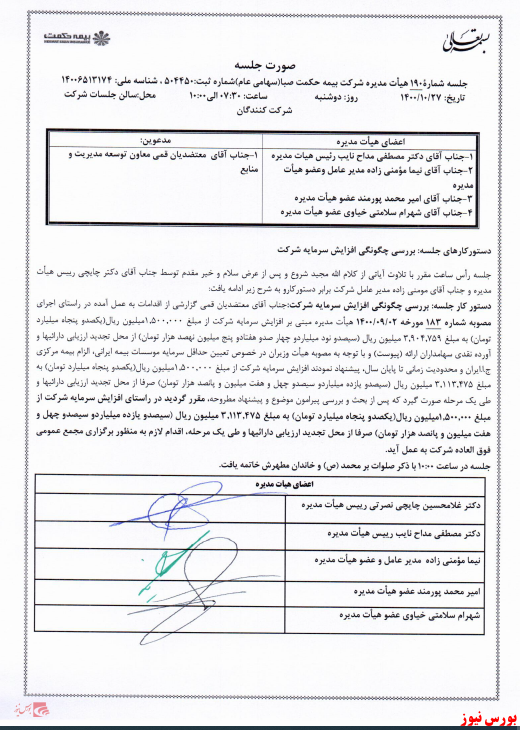 بسمه تعالی
بیمه حکمت
صورت جلسه
جلسه شمارۀ ۱۹۰ هیأت مدیره شرکت بیمه حکمت صبا(سهامی عام)شماره ثبت:۵۰۴۴۵۰ ، شناسه ملی: ۱۴۰۰۶۵۱۳۱۷۴
تاریخ: ۱۴۰۰/۱۰/۲۷ روز: دوشنبه ساعت: ۰۷:۳۰ الی۱۰:۰۰ محل:سالن جلسات شرکت
شرکت کنندگان
اعضای هیأت مدیره
مدعوین:
۱-جناب آقای دکتر مصطفی مداح نایب رئیس هیات مدیره
۲-جناب آقای نیما مؤمنی زاده مدیر عامل وعضو هیأت
مدیره
۳-جناب آقای امیر محمد پورمند عضو هیأت مدیره
۴-جناب آقای شهرام سلامتی خیاوی عضو هیأت مدیره
۱-جناب آقای معتضدیان قمی معاون توسعه مدیریت و
منابع
دستورکارهای جلسه: بررسی چگونگی افزایش سرمایه شرکت
جلسه رأس ساعت مقرر با تلاوت آیاتی از کلام الله مجید شروع و پس از عرض سلام و خیر مقدم توسط جناب آقای دکتر چایچی رییس هیأت
مدیره و جناب آقای مومنی زاده مدیر عامل شرکت برابر دستورکارو به شرح زیر ادامه یافت:
دستور کار جلسه: بررسی چگونگی افزایش سرمایه شرکت:جناب آقای معتضدیان قمی گزارشی از اقدامات به عمل آمده در راستای اجرای
مصوبه شماره ۱۸۳ مورخه ۱۴۰۰/۰۹/۰۲ هیأت مدیره مبنی بر افزایش سرمایه شرکت از مبلغ ۱،۵۰۰،۰۰۰ میلیون ریال(یکصدو پنجاه میلیارد
تومان) به مبلغ ۳،۹۰۴،۷۵۹ میلیون ریال (سیصدو نود میلیاردو چهار صدو هفتادو پنج میلیون نهصد هزار تومان) از محل تجدید ارزیابی دارائیها و
آورده نقدی سهامداران ارائه (پیوست) و با توجه به مصوبه هیأت وزیران در خصوص تعیین حداقل سرمایه موسسات بیمه ایرانی، الزام بیمه مرکزی
ج.ا.ایران و محدودیت زمانی تا پایان سال، پیشنهاد نمودند افزایش سرمایه شرکت از مبلغ ۱،۵۰۰،۰۰۰میلیون ریال(یکصدو پنجاه میلیارد تومان) به
مبلغ ۳،۱۱۳،۴۷۵ میلیون ریال (سیصدو یازده میلیاردو سیصدو چهل و هفت میلیون و پانصد هزار تومان) صرفا از محل تجدید ارزیابی دارائیها و
طی یک مرحله صورت گیرد که پس از بحث و بررسی پیرامون موضوع و پیشنهاد مطروحه، مقرر گردید در راستای افزایش سرمایه شرکت از
مبلغ ۱،۵۰۰،۰۰۰میلیون ریال(یکصدو پنجاه میلیارد تومان) به مبلغ ۳،۱۱۳،۴۷۵ میلیون ریال (سیصدو یازده میلیاردو سیصدو چهل و
هفت میلیون و پانصد هزار تومان) صرفا از محل تجدید ارزیابی دارائیها و طی یک مرحله، اقدام لازم به منظور برگزاری مجمع عمومی
فوق العاده شرکت به عمل آید.
جلسه در ساعت ۱۰:۰۰ با ذکر صلوات بر محمد (ص) و خاندان مطهرش خاتمه یافت.
اعضای هیات مدیره
دکتر غلامحسین چایچی نصرتی رییس هیأت مدیره
دکتر مصطفی مداح نایب رییس هیأت مدیره
نیما مؤمنی زاده مدیر عامل و عضو هیأت مدیره
امیر محمد پورمند عضو هیأت مدیره
شهرام سلامتی خیاوی عضو هیأت مدیره
بورس نیوز
بورس نیوز